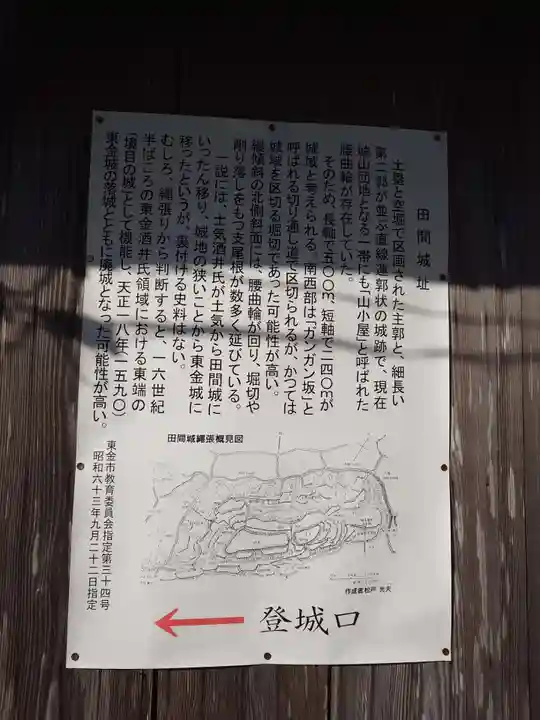 田間城址
土塁と空堀で区画された主郭と、細長い
第二郭が並ぶ直線連郭状の城跡で、現在
城山団地となる一帯にも「山小屋」と呼ばれた
腰曲輪が存在していた。
そのため、長軸で五〇〇m、短軸で二四〇mが
城域と考えられる。南西部は「ガンガン坂」と
呼ばれる切り通し道で区切られるが、かつては
城域を区切る堀切であった可能性が高い。
緩傾斜の北側斜面には、腰曲輪が回り、堀切や
削り落しをもつ支尾根が数多く延びている。
一説には、土気酒井氏が土気から田間城に
いったん移り、城地の狭いことから東金城に
移ったというが、裏付ける史料はない。
むしろ、縄張りから判断すると、一六世紀
半ばころの東金酒井氏領域における東端の
「境目の城」として機能し、天正一八年(一五九〇)
東金城の落城とともに廃城となった可能性が高い。
東金市教育委員会指定第三十四号
昭和六十三年九月二十二日指定
田間城縄張概見図
作成者松戸 光夫
登城口